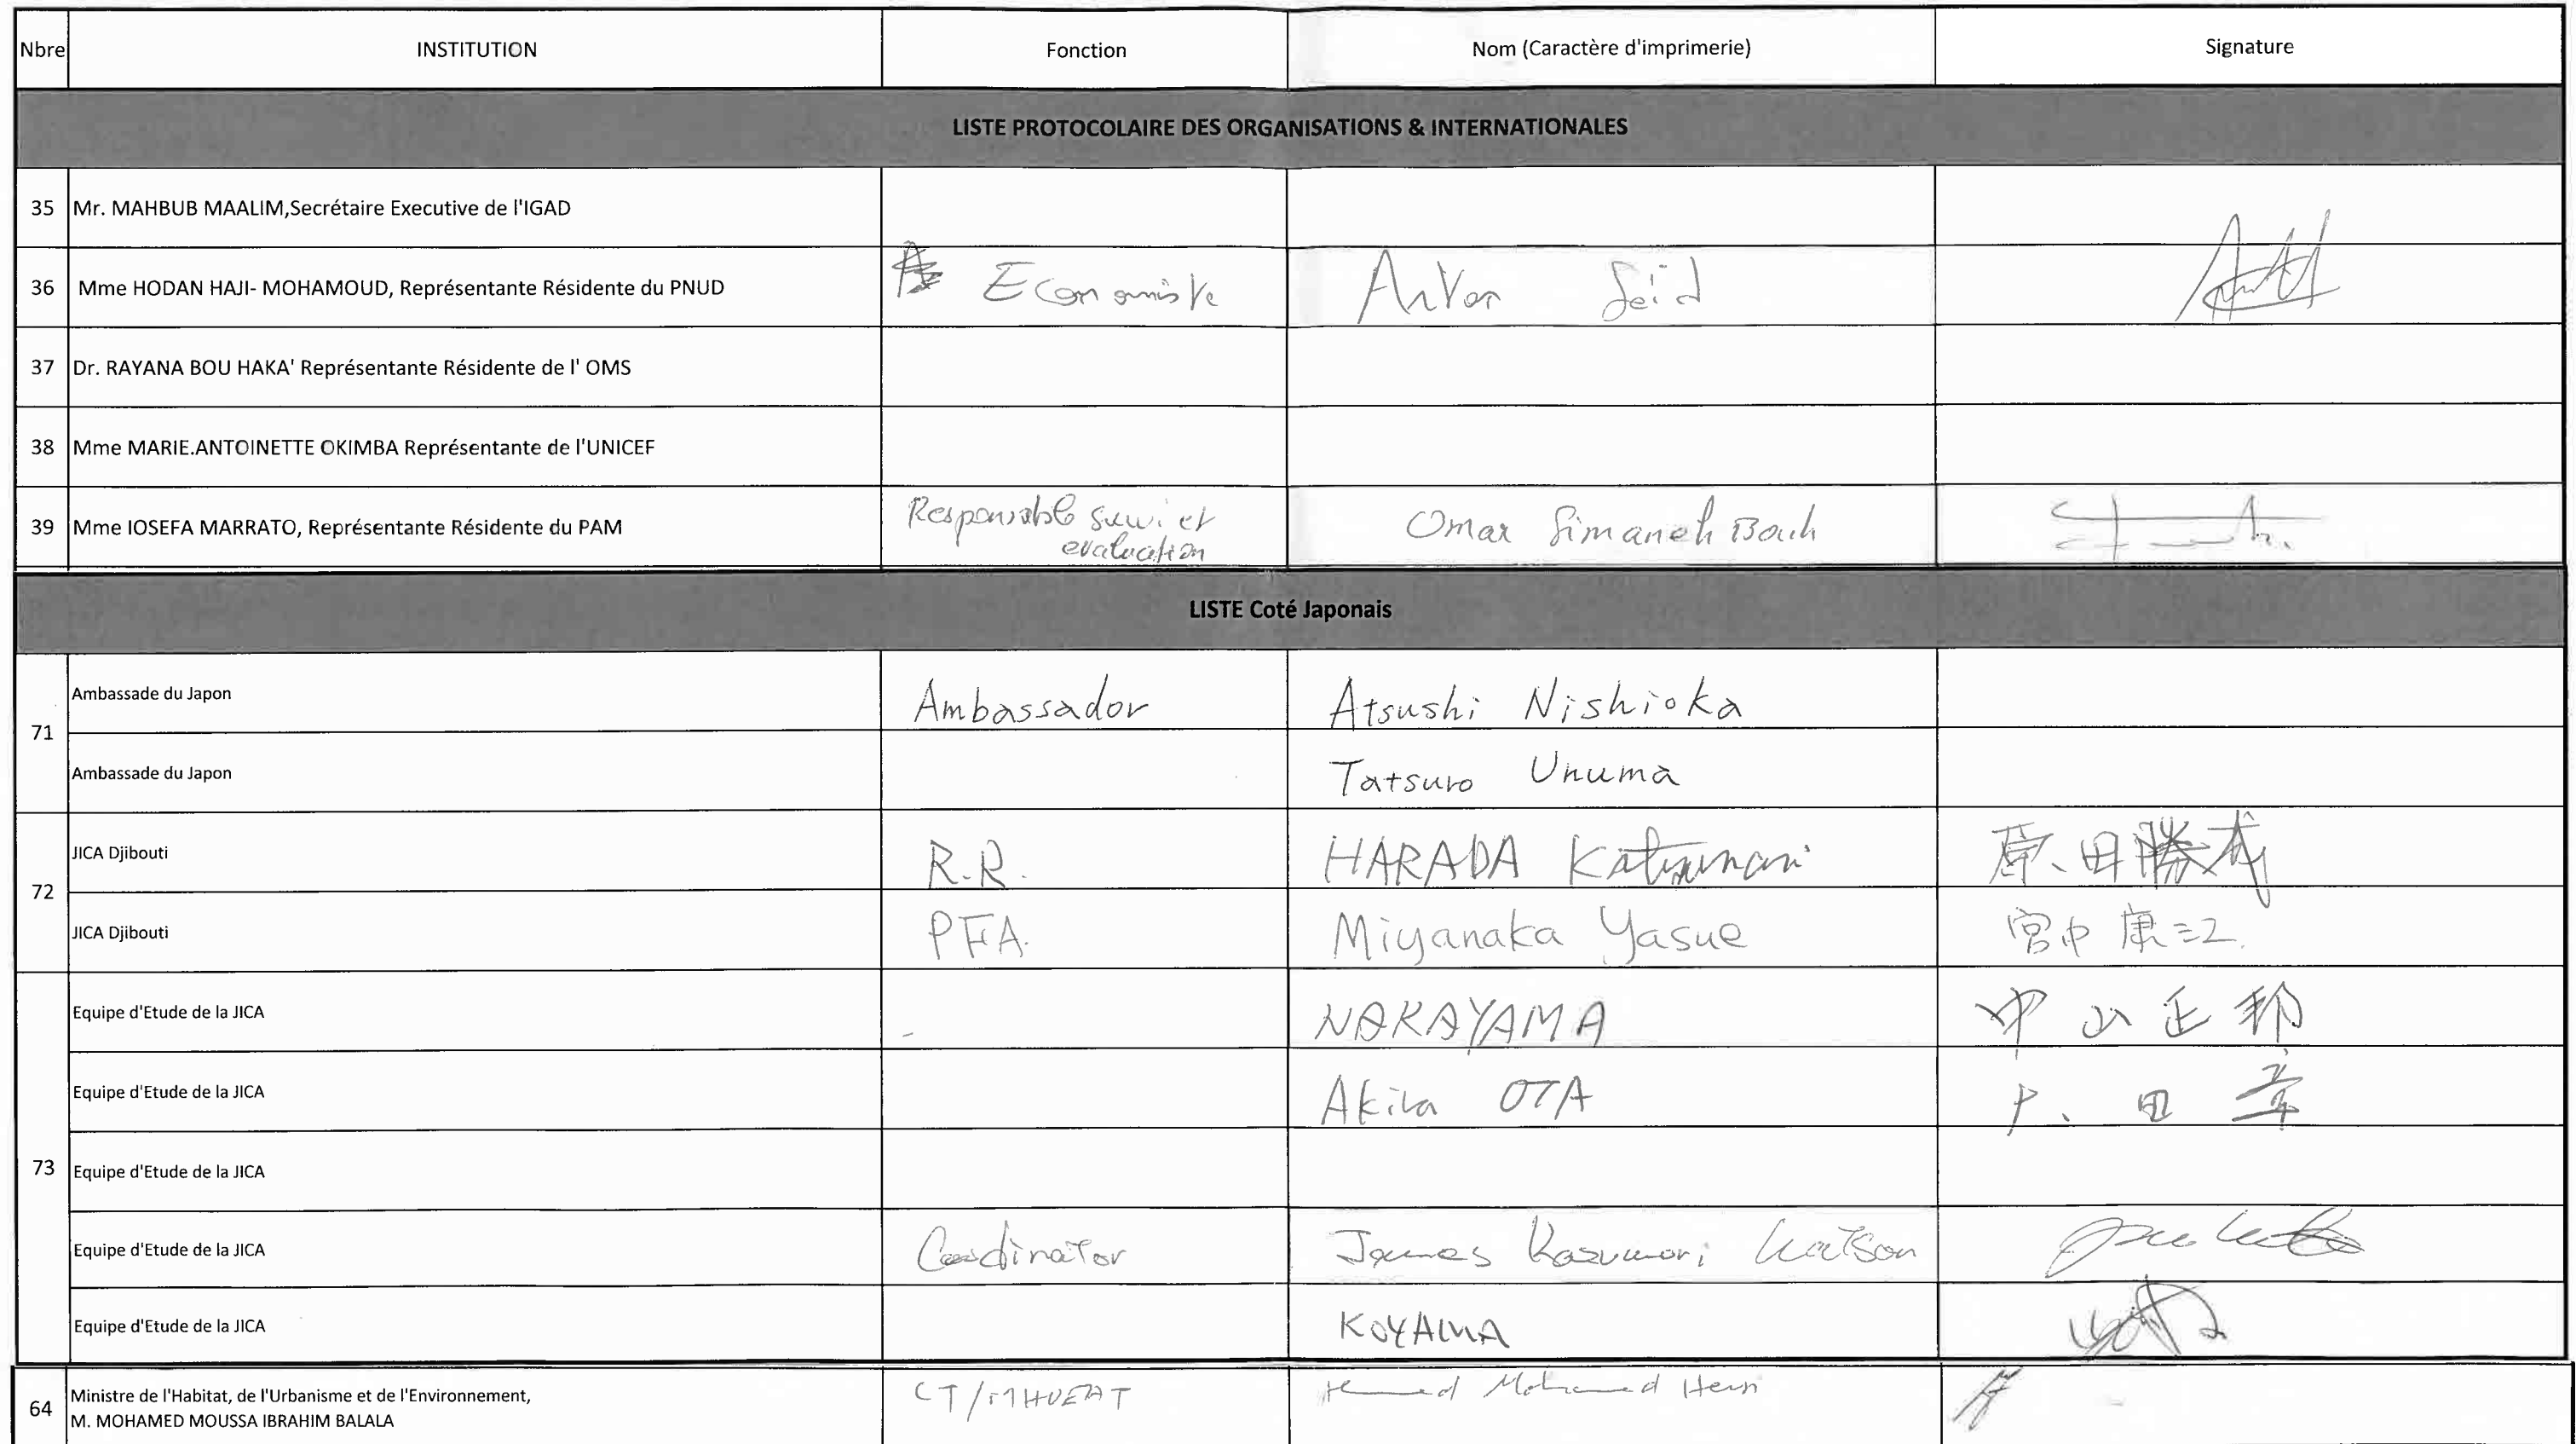 Nbre INSTITUTION Fonction Nom (Caractère d'imprimerie) Signature
LISTE PROTOCOLAIRE DES ORGANISATIONS & INTERNATIONALES
35 Mr. MAHBUB MAALIM,Secrétaire Executive de l'IGAD
36 Mme HODAN HAJI- MOHAMOUD, Représentante Résidente du PNUD Economiste
37 Dr. RAYANA BOU HAKA' Représentante Résidente de l' OMS
38 Mme MARIE.ANTOINETTE OKIMBA Représentante de l'UNICEF
39 Mme IOSEFA MARRATO, Représentante Résidente du PAM Responsable suivi et Omar
evaluation
LISTE Coté Japonais
71
Ambassade du Japon Ambassador Atsushi Nishioka
Ambassade du Japon Tatsuro Unuma
72
JICA Djibouti R.R. HARADA Katsunari 原田勝成
JICA Djibouti PFA. Miyanaka Yasue 宮中康江
73
Equipe d'Etude de la JICA NAKAYAMA 中山正邦
Equipe d'Etude de la JICA Akira OTA 戸田章
Equipe d'Etude de la JICA
Equipe d'Etude de la JICA Coordinator James Kazunori Watson
Equipe d'Etude de la JICA KOYAMA
64 Ministre de l'Habitat, de l'Urbanisme et de l'Environnement,
M. MOHAMED MOUSSA IBRAHIM BALALA Mohamed